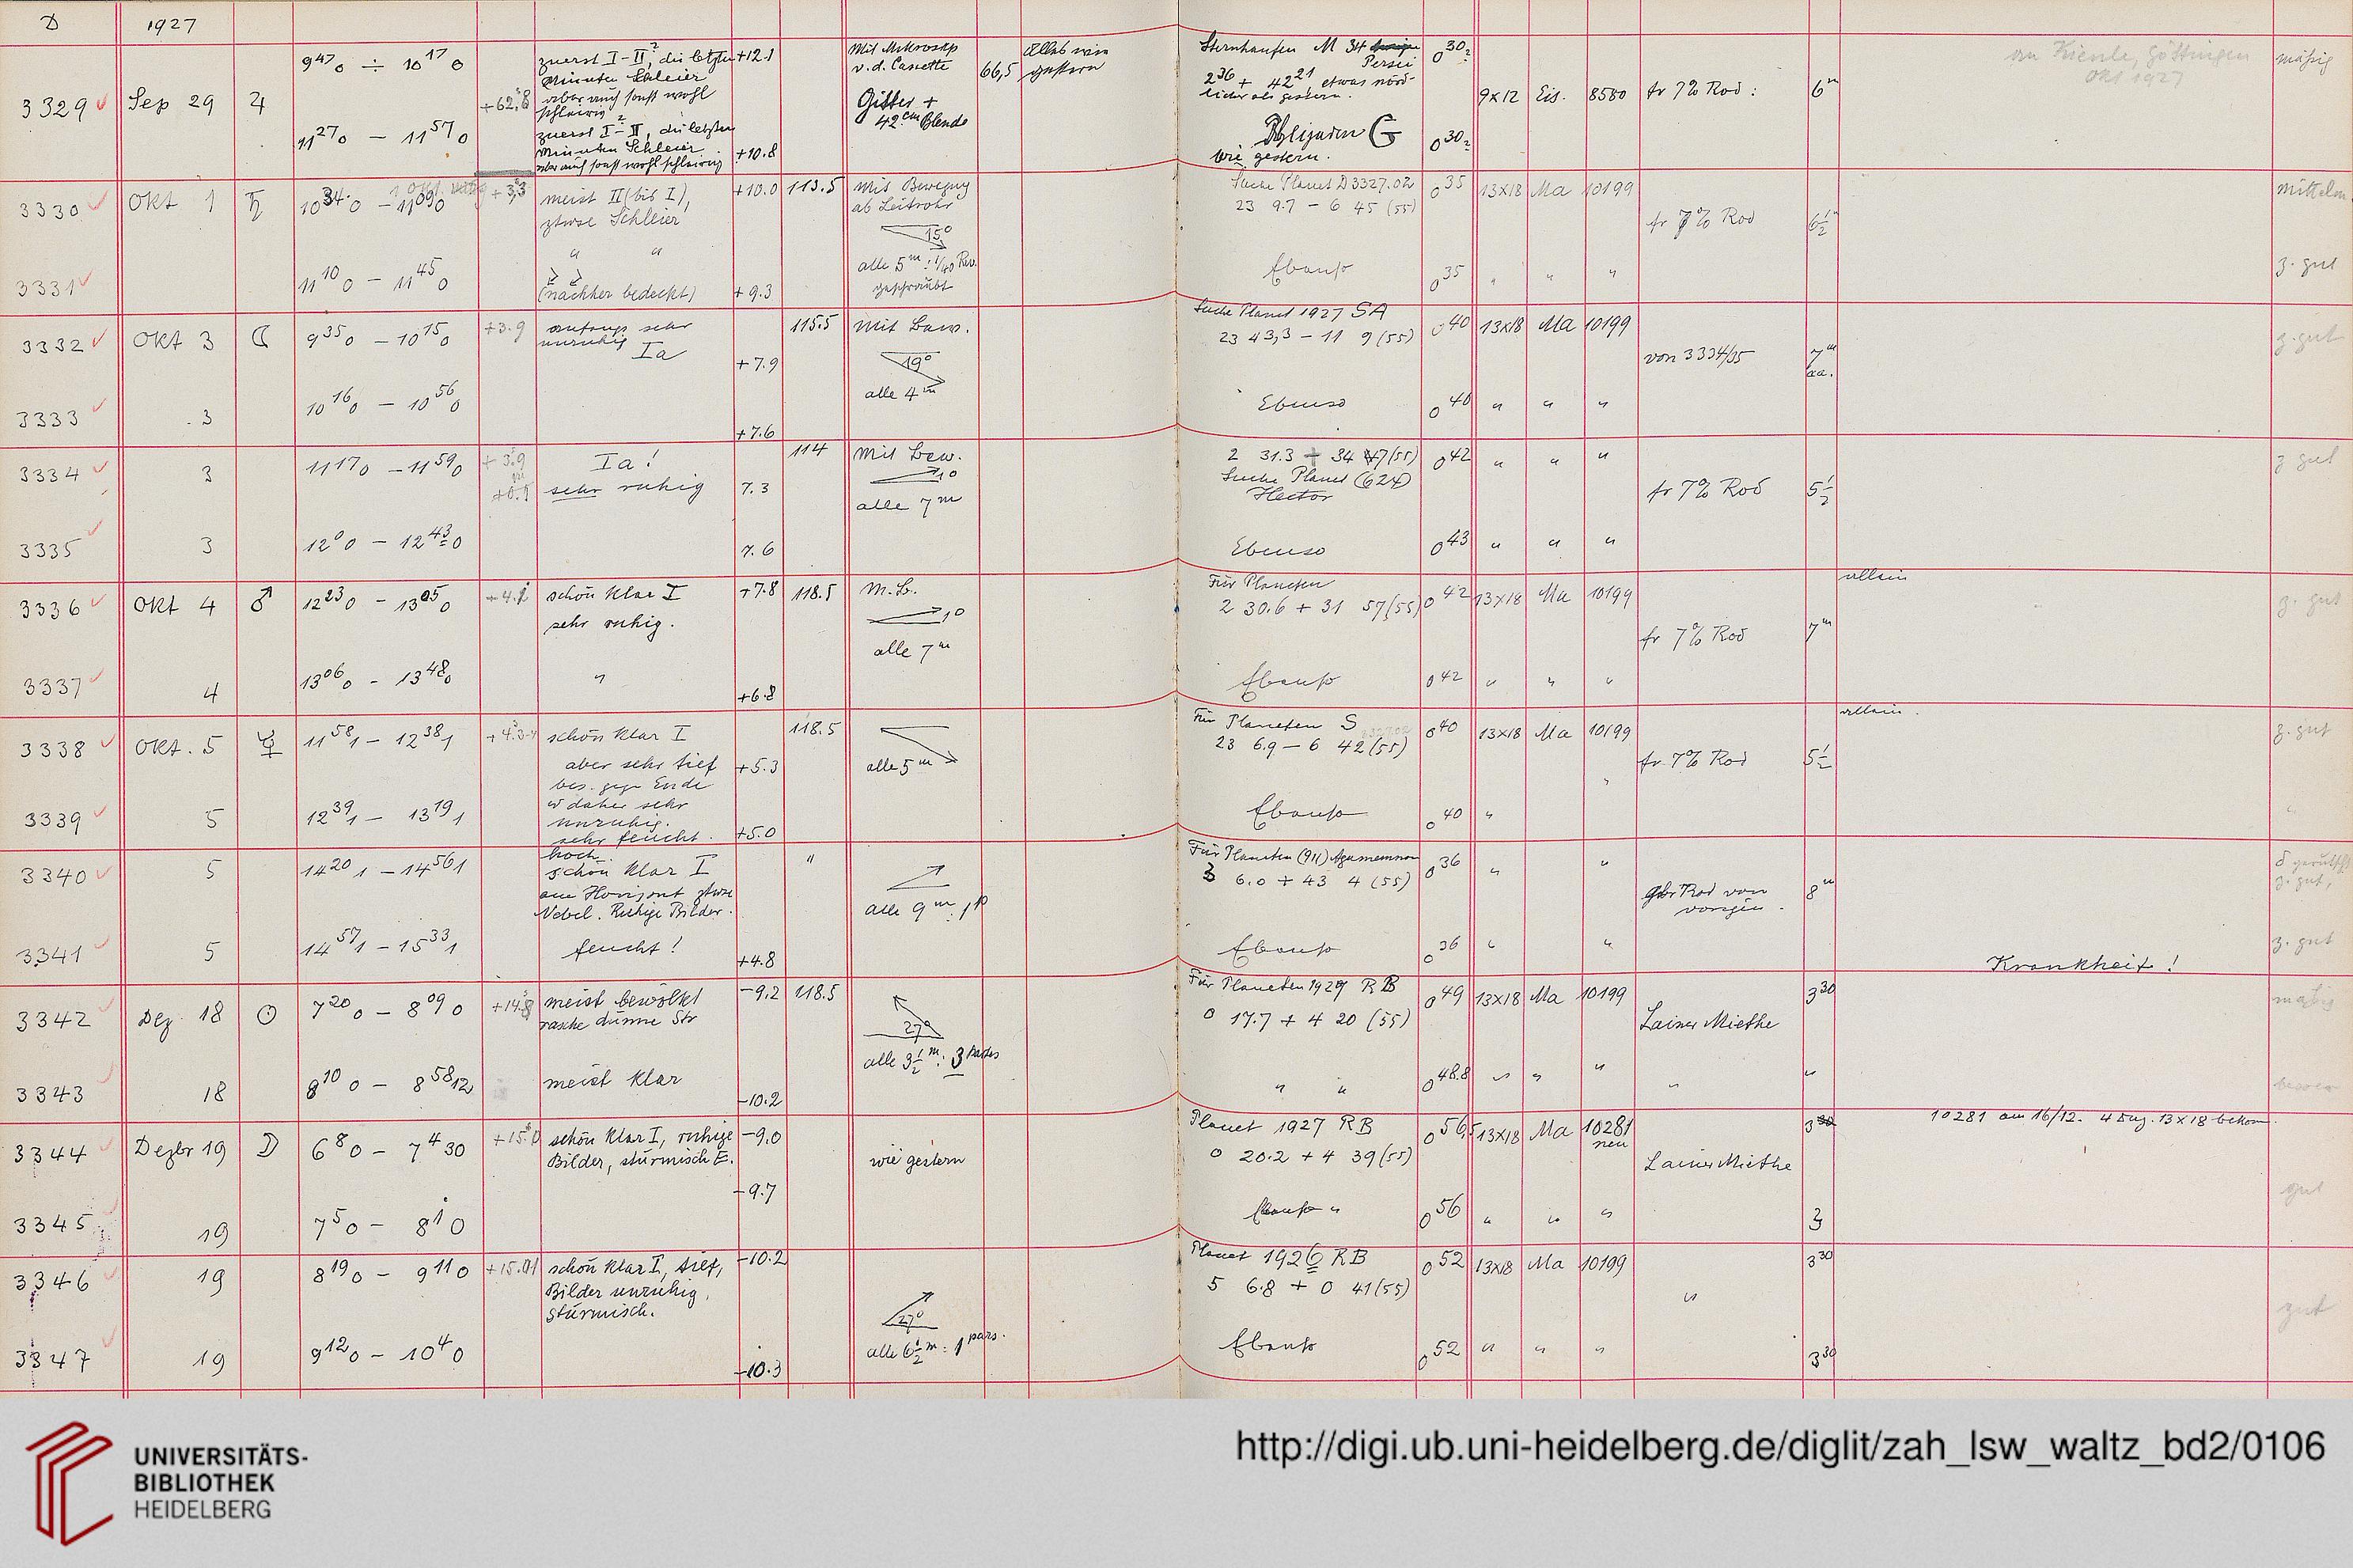 D 1927
3329 Sep 29 ♃ 9 47 0 ÷ 10 17 0 +62,8 zuerst I-II?, die letzten Minuten Schleier aber auch sonst wohl schleirig +12.1 Mit Mikroskp v. d. Cassette 66,5 Alles wie gestern Sternhaufen M 34 Persei 0 30 mäßig
2 36 + 42 21, etwas nördlicher als gestern. 9x12 Eis. 8580 fr 7% Rod: 6m an Kienle, Göttingen Okt 1927
Gitter + 42 cm Blende
11 27 0 - 11 57 0 zuerst I-II?, die letzten Minuten Schleier aber auch sonst wohl schleirig +10.8 Plejaden G wie gestern. 0 30
3330 Okt 1 ♄ 10 34 0 - 11 09 0 +3,3 meist II (bis I), etwas Schleier +10.0 113.5 Mit Bewegung ab Leitrohr 15° Suche Planet D3327.02 23 9.7 - 6 45 (55) 0 35 13x18 Ma 10199 fr 7% Rod 6½m mittelm.
3331 11 10 0 - 11 45 0 " " (nachher bedeckt) +9.3 alle 5m: 1/40 Rev. geschraubt Ebenso 0 35 " " " z. gut
3332 Okt 3 ☾ 9 35 0 - 10 15 0 +3.9 anfangs sehr unruhig Ia +7.9 115.5 Mit Bew. 19° alle 4m Suche Planet 1927 SA 23 43,3 - 11 9 (55) 0 40 13x18 Ma 10199 von 3334/35 7m aa. z. gut
3333 3 10 16 0 - 10 56 0 +7.6 Ebenso 0 40 " " "
3334 3 11 17 0 - 11 59 0 +3.9 Ia! sehr ruhig 7.3 114 Mit Bew. 10 alle 7m 2 31.3 + 34 47 (55) Suche Planet (624) Hector 0 42 " " " fr 7% Rod 5½ z gut
3335 3 12 0 0 - 12 43 0 7.6 Ebenso 0 43 " " "
3336 Okt 4 ♂ 12 23 0 - 13 05 0 schön klar I sehr ruhig. +7.8 118.5 M.B. 10 alle 7m Für Planeten 2 30.6 + 31 57 (55) 0 42 13x18 Ma 10199 fr 7% Rod 7m allein z. gut
3337 4 13 06 0 - 13 48 0 " +6.8 Ebenso 0 42 " " "
3338 Okt. 5 ☿ 11 58 1 - 12 38 1 schön klar I aber sehr tief bes. gegen Ende u daher sehr unruhig. sehr feucht. +5.3 118.5 alle 5m Für Planeten S 23 6.9 - 6 42 (55) 0 40 13x18 Ma 10199 fr 7% Rod 5½ allein. z. gut
3339 5 12 39 1 - 13 19 1 +5.0 Ebenso 0 40 " "
3340 5 14 20 1 - 14 56 1 hoch. schön klar I am Horizont etwas Nebel. Ruhige Bilder. " alle 9m 1p Für Planeten (911) Agamemnon 3 6.0 + 43 4 (55) 0 36 " " gbr Rod von vorigen. 8m z. gut,
3341 5 14 57 1 - 15 33 1 feucht! +4.8 Ebenso 0 36 " " z. gut
Krankheit!
3342 Dez 18 ☉ 7 20 0 - 8 09 0 +14.8 meist bewölkt rasche dünne Str -9.2 118.5 27° alle 3½m: 3 partes Für Planeten 1927 RB 0 17.7 + 4 20 (55) 0 49 13x18 Ma 10199 Lainer Miethe 3 30 mäßig
3343 18 8 10 0 - 8 58 12 meist klar -10.2 " " 0 48.8 " " " " " besser
3344 Dezbr 19 ☽ 6 8 0 - 7 4 30 +15.0 schön klar I, ruhige Bilder, stürmisch E. -9.0 wie gestern Planet 1927 RB 0 20.2 + 4 39 (55) 0 56,5 13x18 Ma 10281 neu Lainer Miethe 3 30 10281 am 16/12. 4 Dug. 13x18 bekom.
3345 19 7 5 0 - 8 1 0 -9.7 Ebenso " 0 56 " " " 3 gut
3346 19 8 19 0 - 9 11 0 +15.01 schön klar I, tief, Bilder unruhig, stürmisch. -10.2 27° alle 6½m: 1 pars. Planet 1926 RB 5 6.8 + 0 41 (55) 0 52 13x18 Ma 10199 " 3 30 gut
3347 19 9 12 0 - 10 4 0 -10.3 Ebenso 0 52 " " " 3 30
UNIVERSITÄTS-
BIBLIOTHEK
HEIDELBERG
http://digi.ub.uni-heidelberg.de/diglit/zah_lsw_waltz_bd2/0106